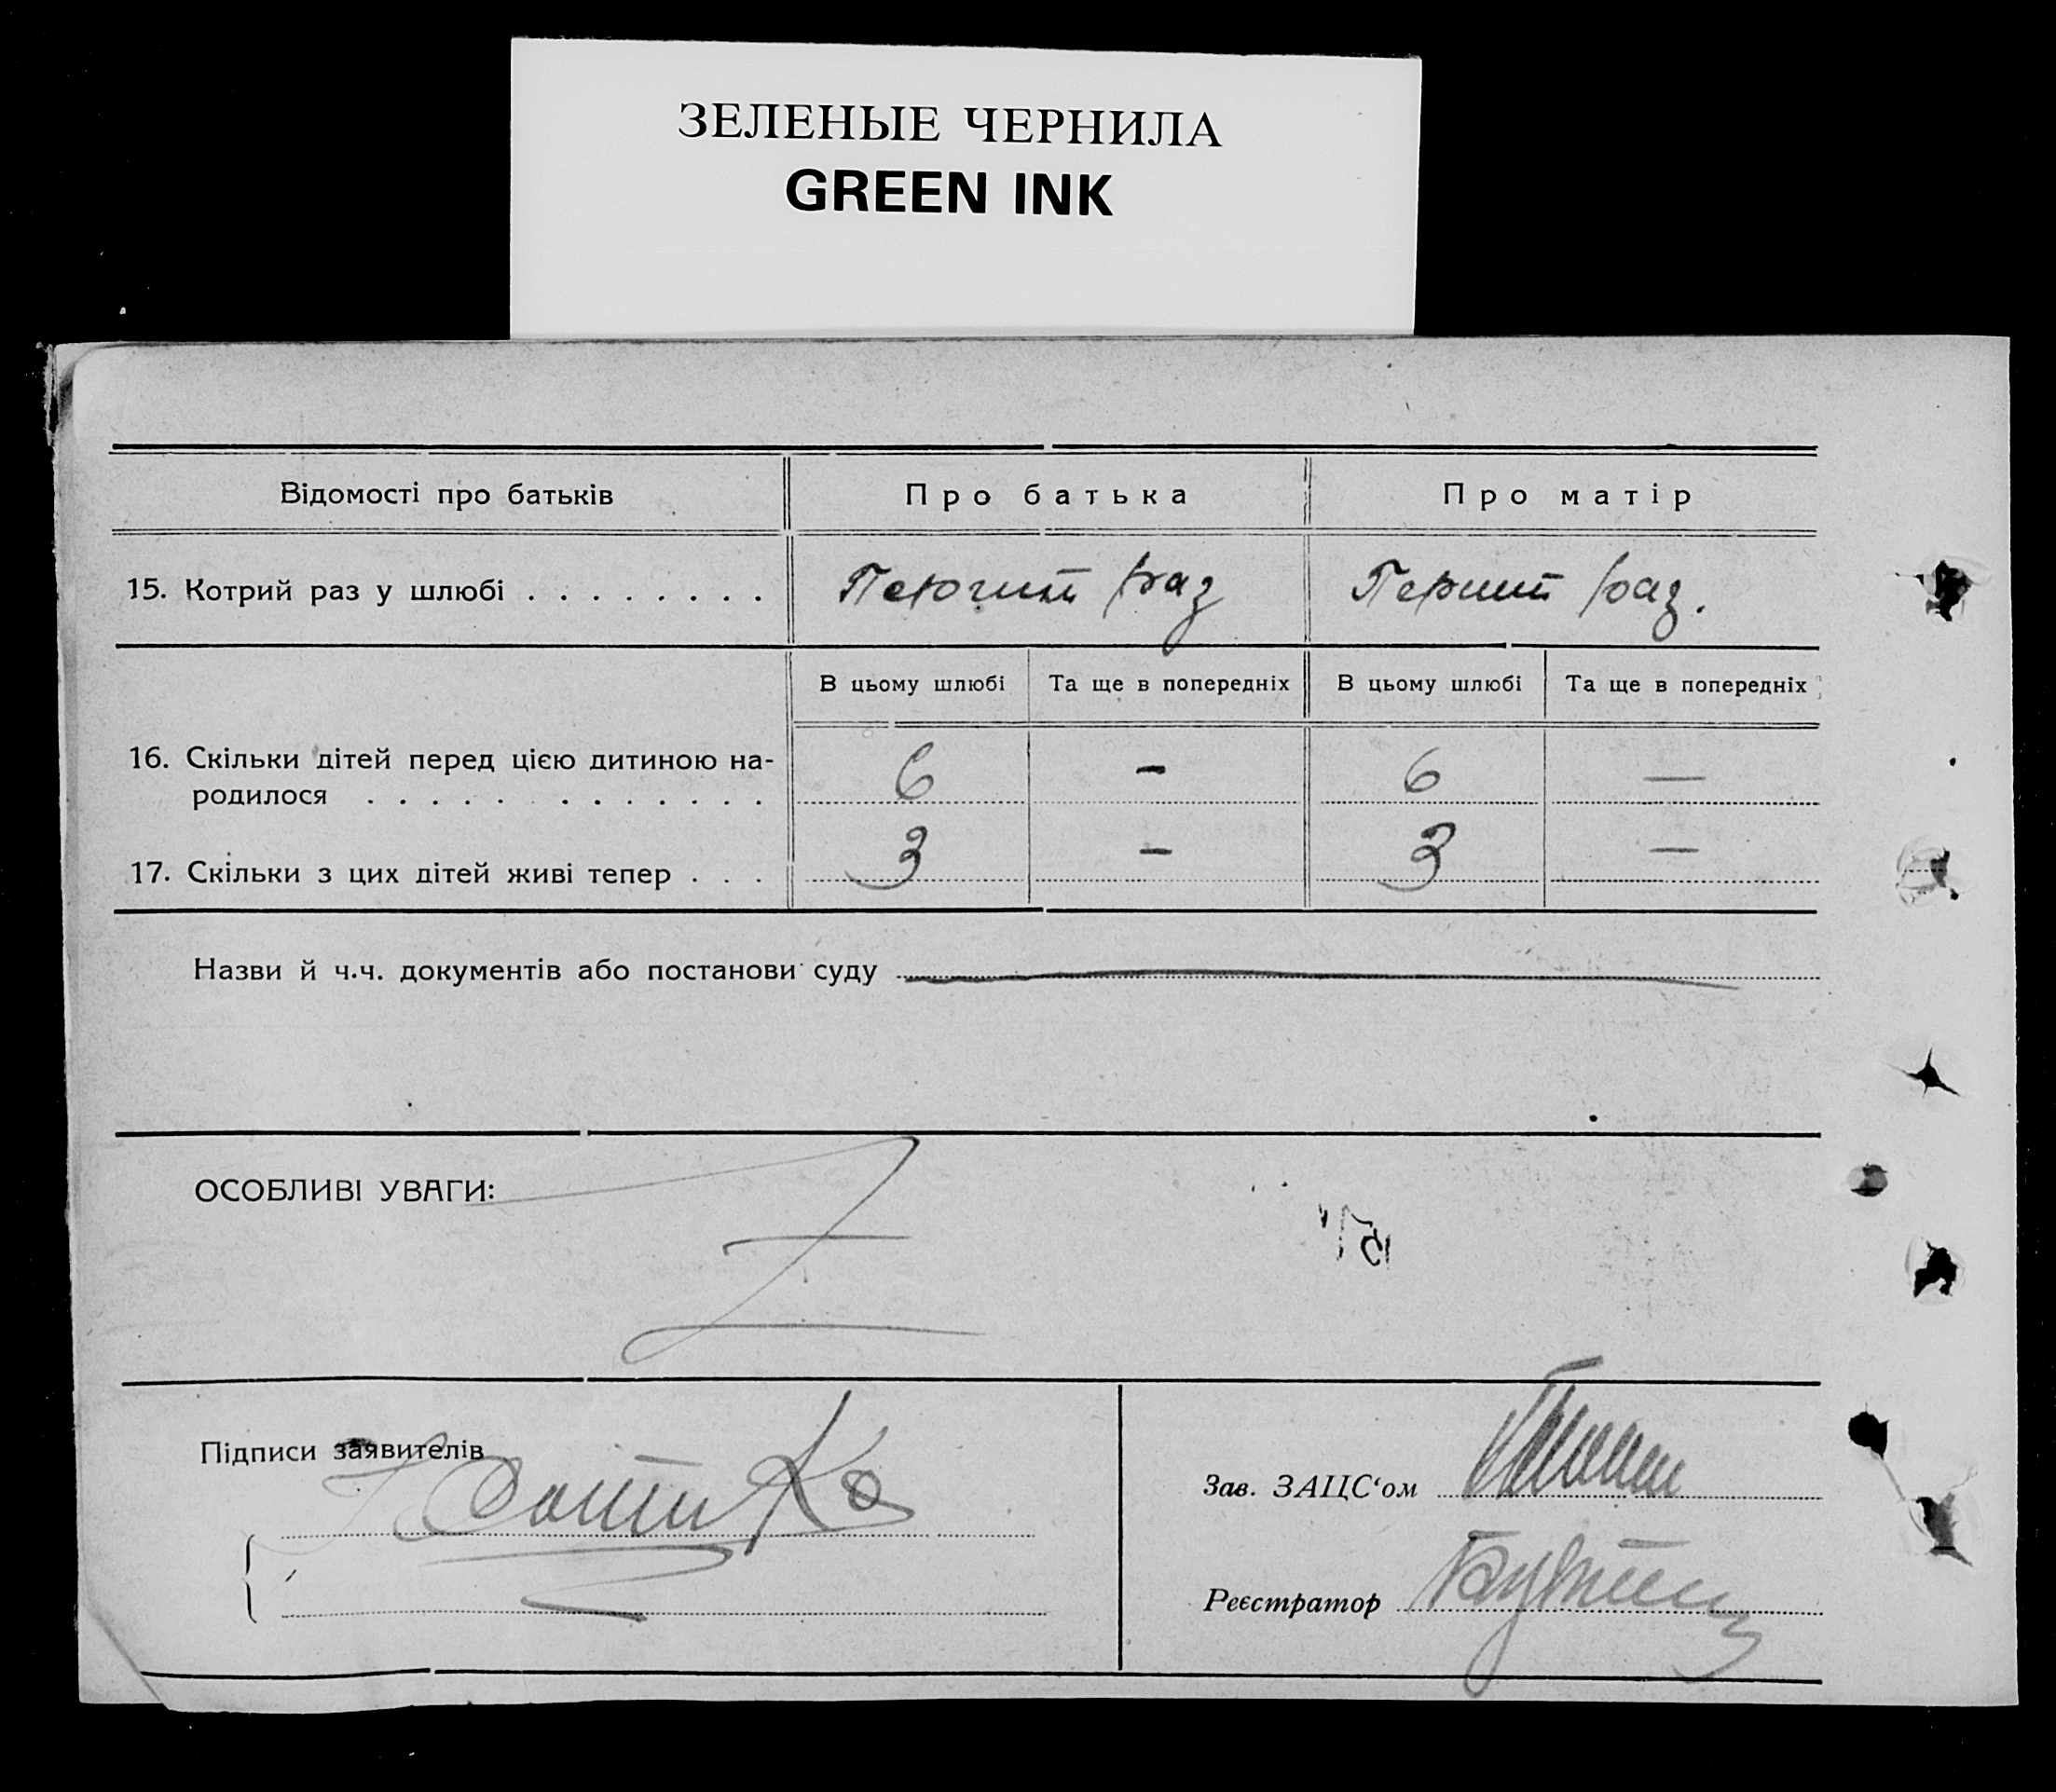 ЗЕЛЕНЫЕ ЧЕРНИЛА
GREEN INK
Відомості про батьків
Про батька
Про матір
15. Котрий раз у шлюбі . . . . . . . .
Перший раз
Перший раз.
В цьому шлюбі
Та ще в попередніх
В цьому шлюбі
Та ще в попередніх
16. Скільки дітей перед цією дитиною на-
родилося . . . . . . . . . . . . .
6
-
6
—
17. Скільки з цих дітей живі тепер . . .
3
-
3
—
Назви й ч.ч. документів або постанови суду
ОСОБЛИВІ УВАГИ:
Підписи заявителів
Зав. ЗАЦС‘ом
Реєстратор